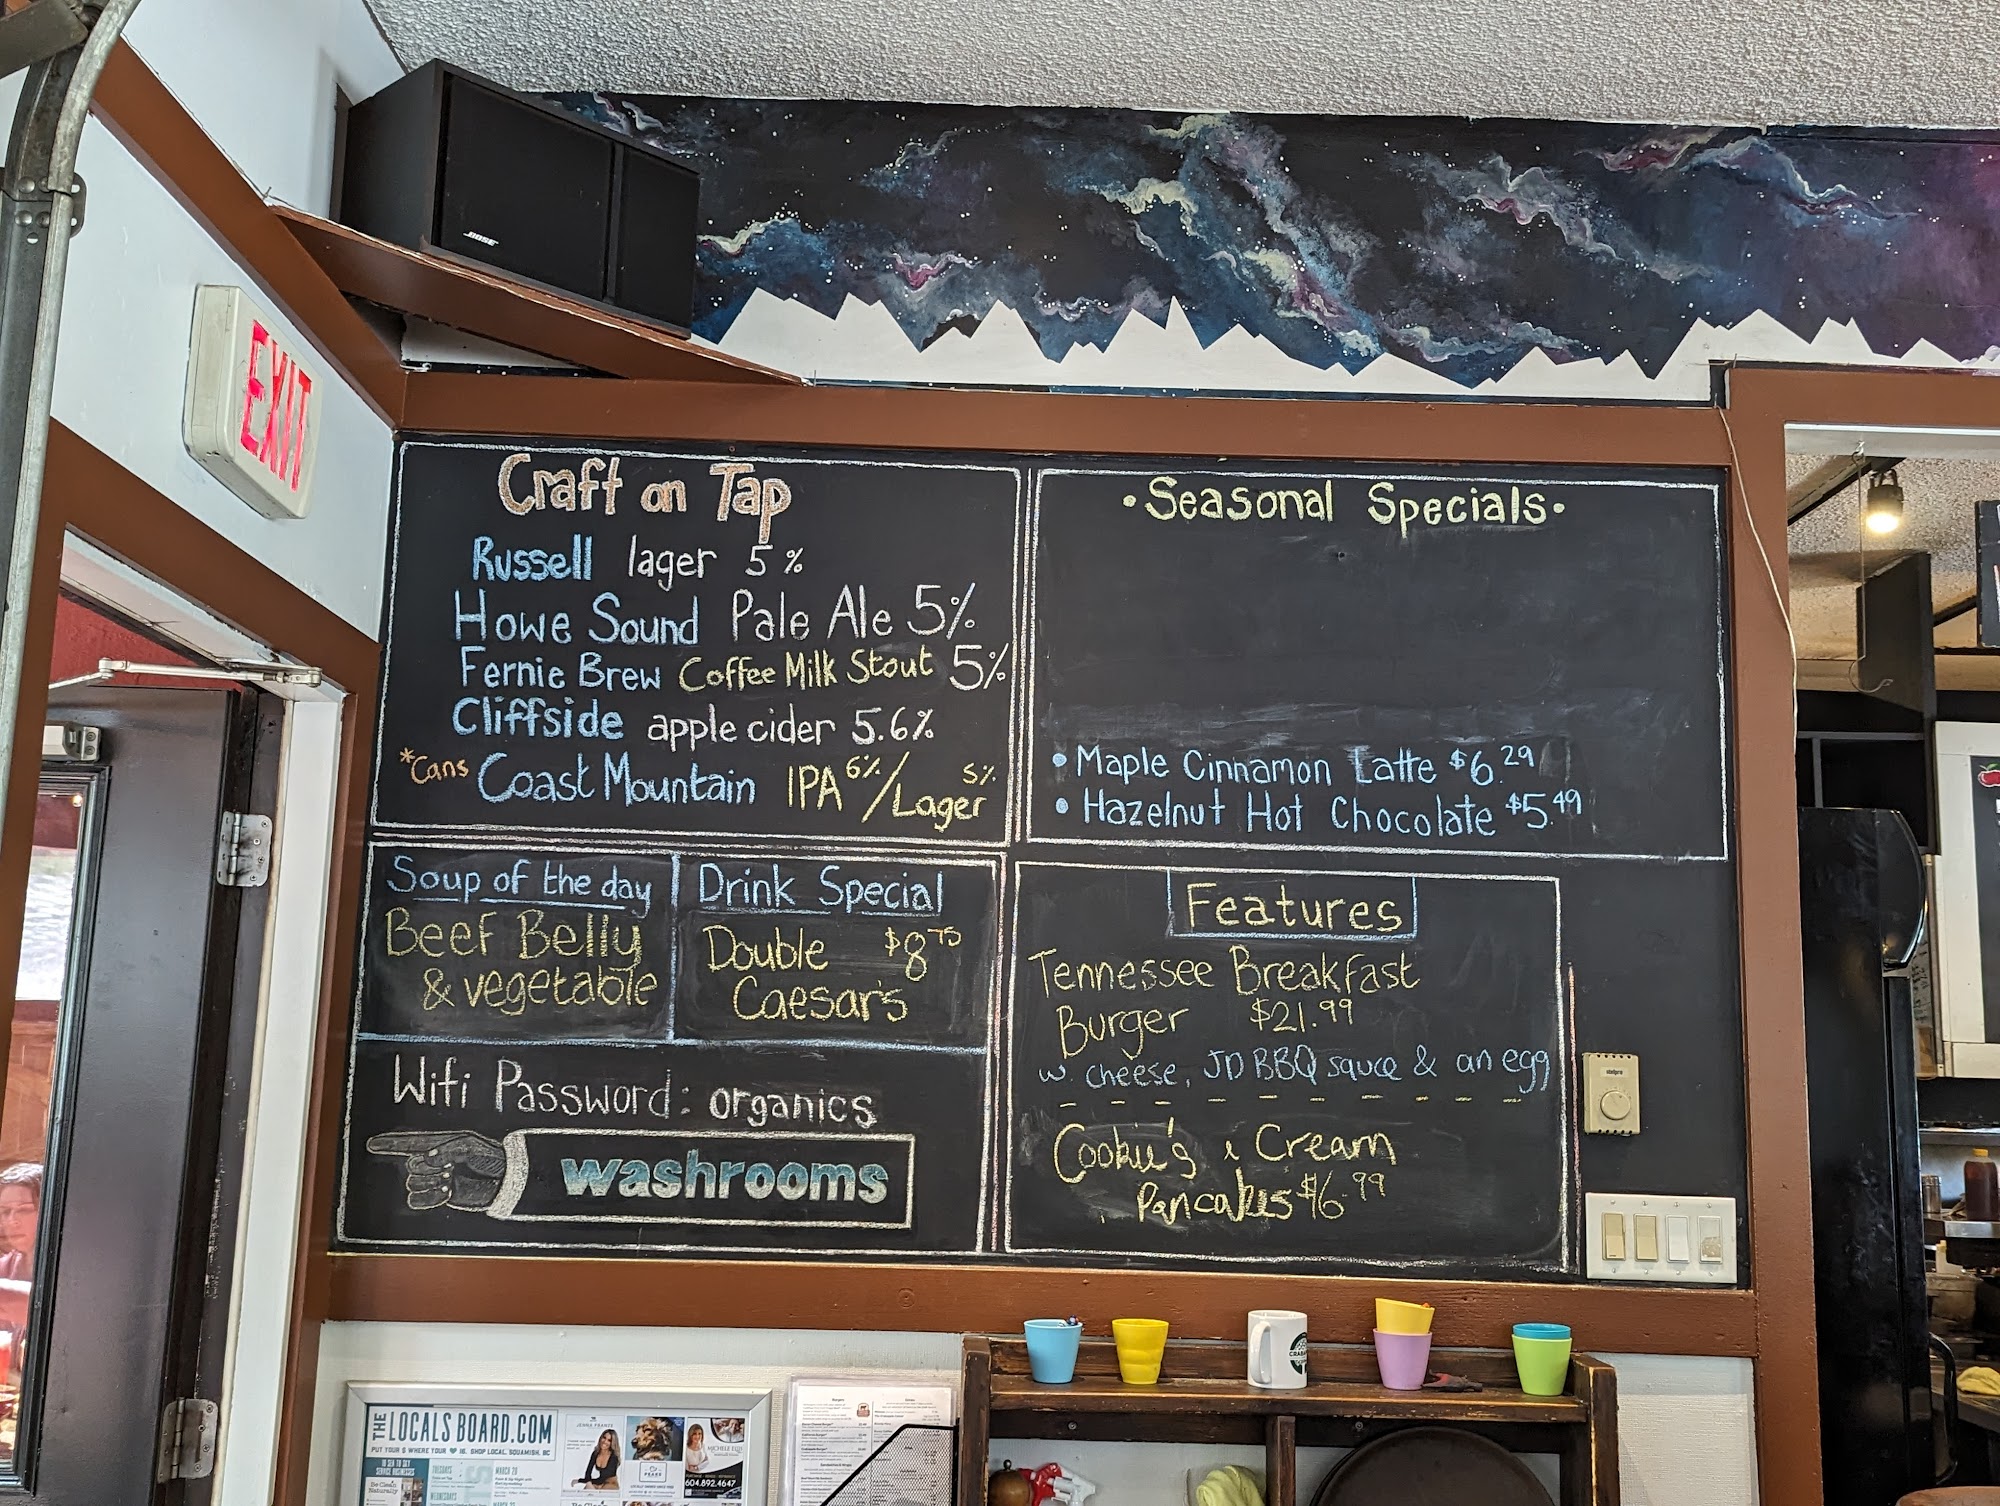 BOSE
EXIT
Craft on Tap
Russell lager 5%
Howe Sound Pale Ale 5%
Fernie Brew Coffee Milk Stout 5%
Cliffside apple cider 5.6%
*Cans Coast Mountain IPA 6% / Lager 5%
• Seasonal Specials •
• Maple Cinnamon Latte $6.29
• Hazelnut Hot Chocolate $5.49
Soup of the day
Beef Belly
& vegetable
Drink Special
Double $8.75
Caesar's
Wifi Password: organics
washrooms
Features
Tennessee Breakfast
Burger $21.99
w. cheese, JD BBQ sauce & an egg
Cookie's & Cream
Pancakes $16.99
stelpro
THE LOCALS BOARD.COM
PUT YOUR $ WHERE YOUR ♥ IS. SHOP LOCAL. SQUAMISH, BC
TUESDAYS
MARCH 20
604.892.4647
Burgers